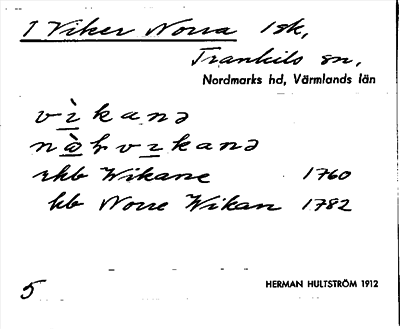 1 Viker Norra 1 sk,
Trankils sn,
Nordmarks hd, Värmlands län
vì̱kanə
nà̱ꞧvi̱kanə
rkb Wikane 1760
kb Norre Wikan 1782
5
HERMAN HULTSTRÖM 1912